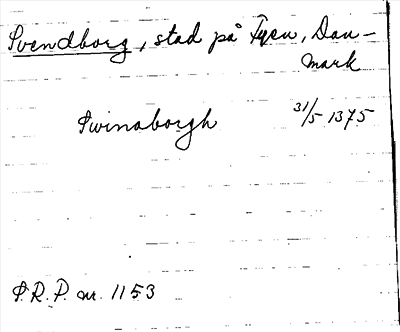 Svendborg, stad på Fyen, Dan-
mark
Swinaborgh 31/5 1375
S.R.P. nr. 1153